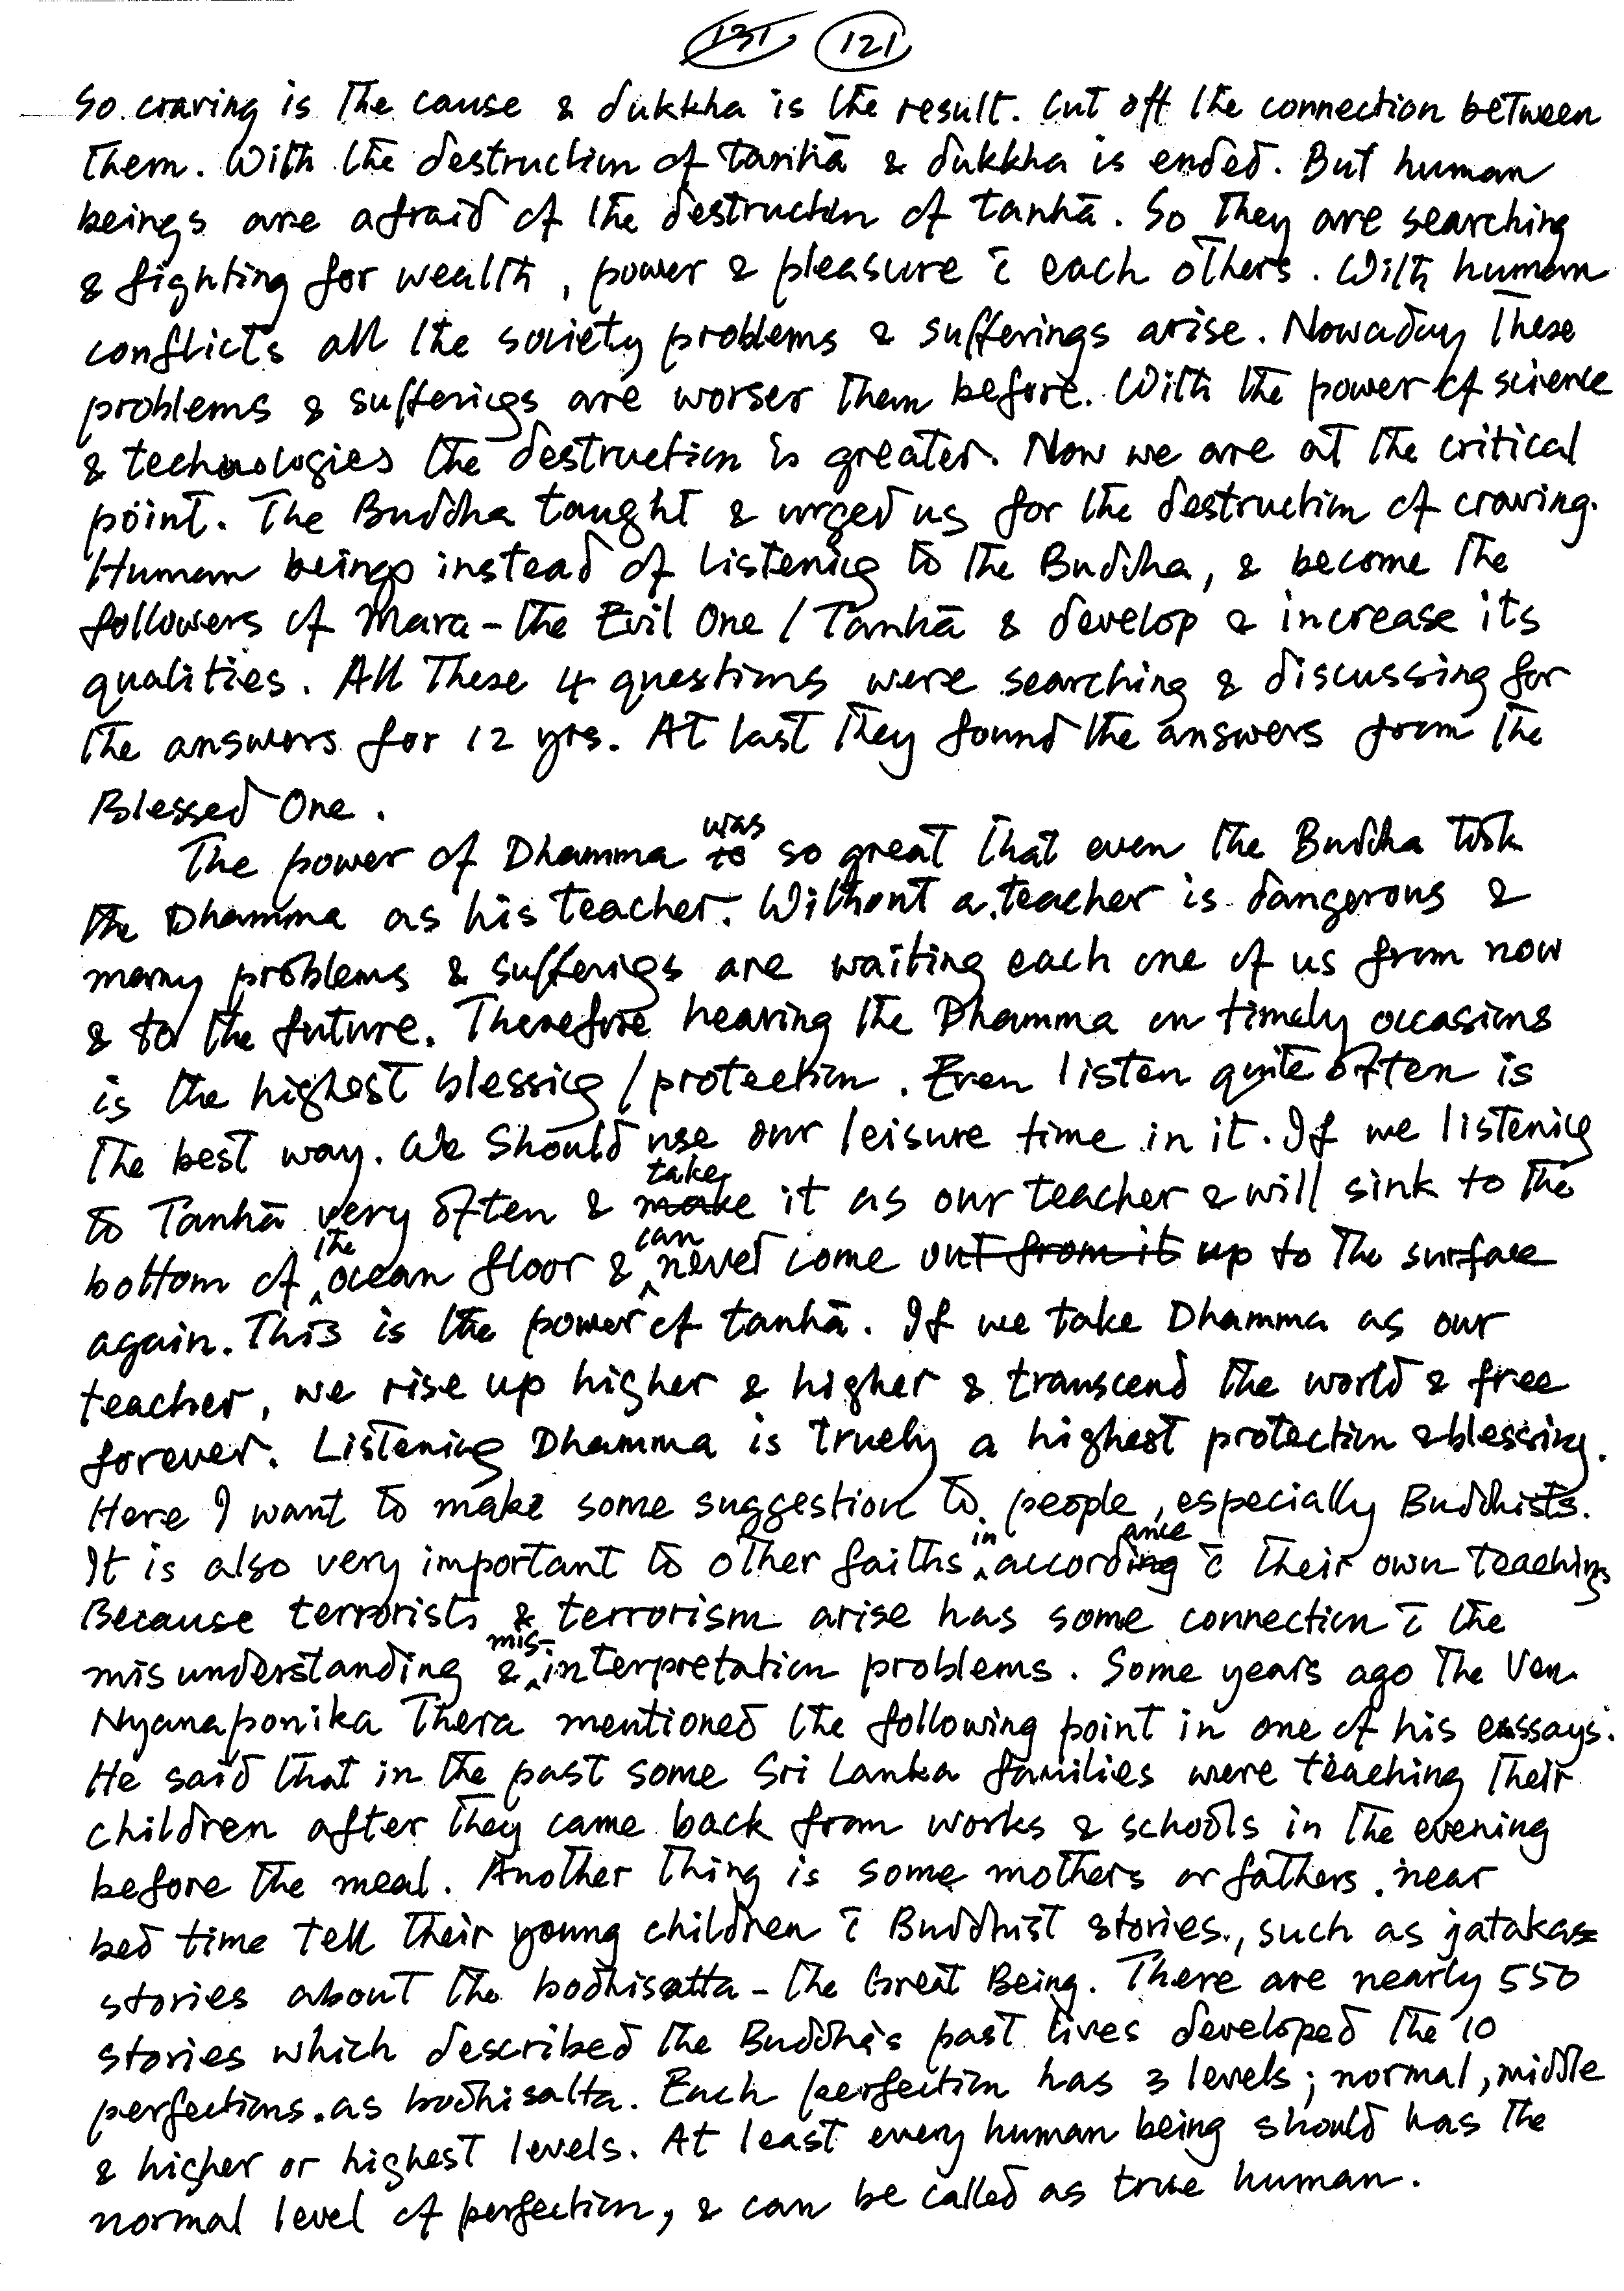 131 121
So craving is the cause & dukkha is the result. Cut off the connection between
them. With the destruction of tanhā & dukkha is ended. But human
beings are afraid of the destruction of tanhā. So they are searching
& fighting for wealth, power & pleasure c̄ each others. With human
conflicts all the society problems & sufferings arise. Nowaday these
problems & sufferings are worser than before. With the power of science
& technologies the destruction is greater. Now we are at the critical
point. The Buddha taught & urged us for the destruction of craving.
Human beings instead of listening to the Buddha, & become the
followers of Mara - the Evil One / Tanhā & develop & increase its
qualities. All these 4 questions were searching & discussing for
the answers for 12 yrs. At last they found the answers from the
Blessed One.
The power of Dhamma was so great that even the Buddha took
the Dhamma as his teacher. Without a teacher is dangerous &
many problems & sufferings are waiting each one of us from now
& to the future. Therefore hearing the Dhamma on timely occasions
is the highest blessing / protection. Even listen quite often is
the best way. We should use our leisure time in it. If we listening
to Tanhā very often & take it as our teacher & will sink to the
bottom of the ocean floor & can never come out from it up to the surface
again. This is the power of tanhā. If we take Dhamma as our
teacher, we rise up higher & higher & transcend the world & free
forever. Listening Dhamma is truely a highest protection & blessing.
Here I want to make some suggestion to people, especially Buddhists.
It is also very important to other faiths in accordance c̄ their own teachings
Because terrorists & terrorism arise has some connection c̄ the
misunderstanding & mis-interpretation problems. Some years ago the Ven.
Nyanaponika Thera mentioned the following point in one of his essays.
He said that in the past some Sri Lanka families were teaching their
children after they came back from works & schools in the evening
before the meal. Another thing is some mothers or fathers near
bed time tell their young children c̄ Buddhist stories, such as jatakas
stories about the bodhisatta - the Great Being. There are nearly 550
stories which described the Buddha's past lives developed the 10
perfections as bodhisatta. Each perfection has 3 levels; normal, middle
& higher or highest levels. At least every human being should has the
normal level of perfection, & can be called as true human.